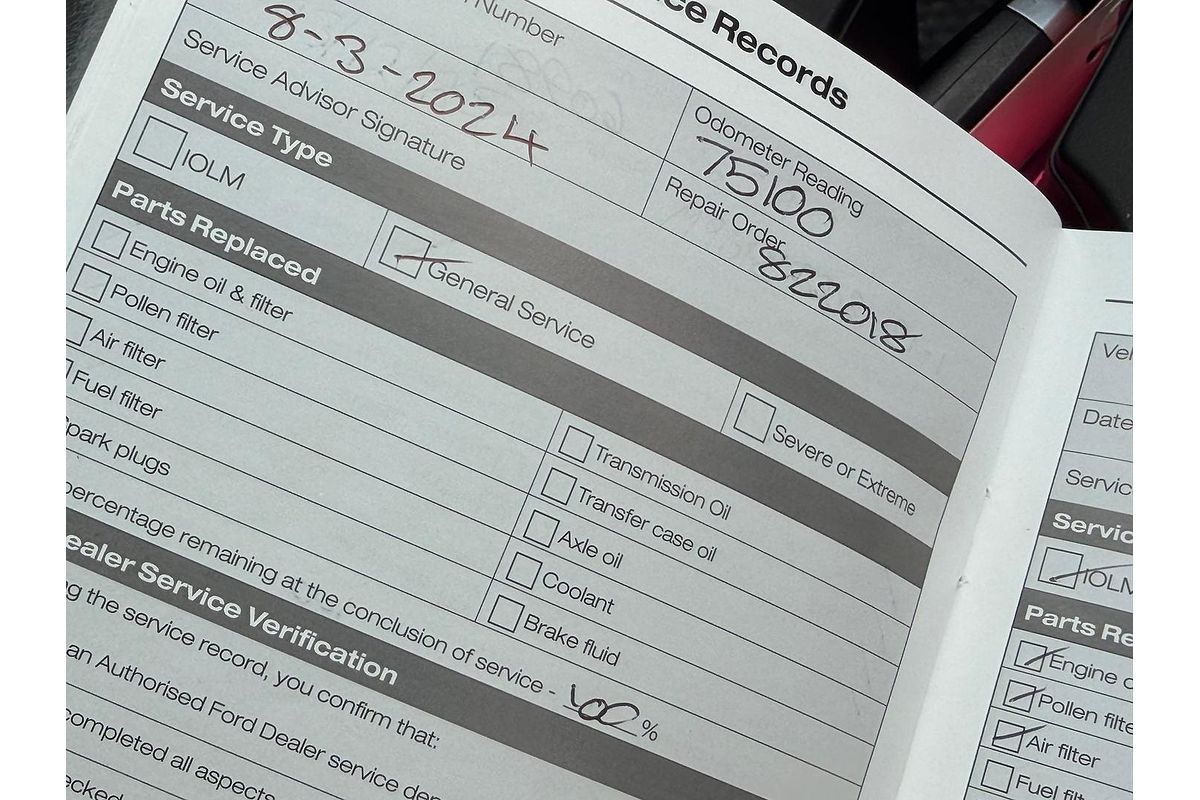 ce Records
Number
8-3-2024
Odometer Reading
75100
Service Advisor Signature
Repair Order
822018
Service Type
IOLM
General Service
Severe or Extreme
Parts Replaced
Engine oil & filter
Pollen filter
Air filter
Fuel filter
park plugs
Transmission Oil
Transfer case oil
Axle oil
Coolant
Brake fluid
percentage remaining at the conclusion of service - 100 %
ealer Service Verification
ng the service record, you confirm that:
an Authorised Ford Dealer service dep
completed all aspects
ecked
Veh
Date
Servic
Servic
IOLM
Parts Re
Engine o
Pollen filte
Air filter
Fuel filt